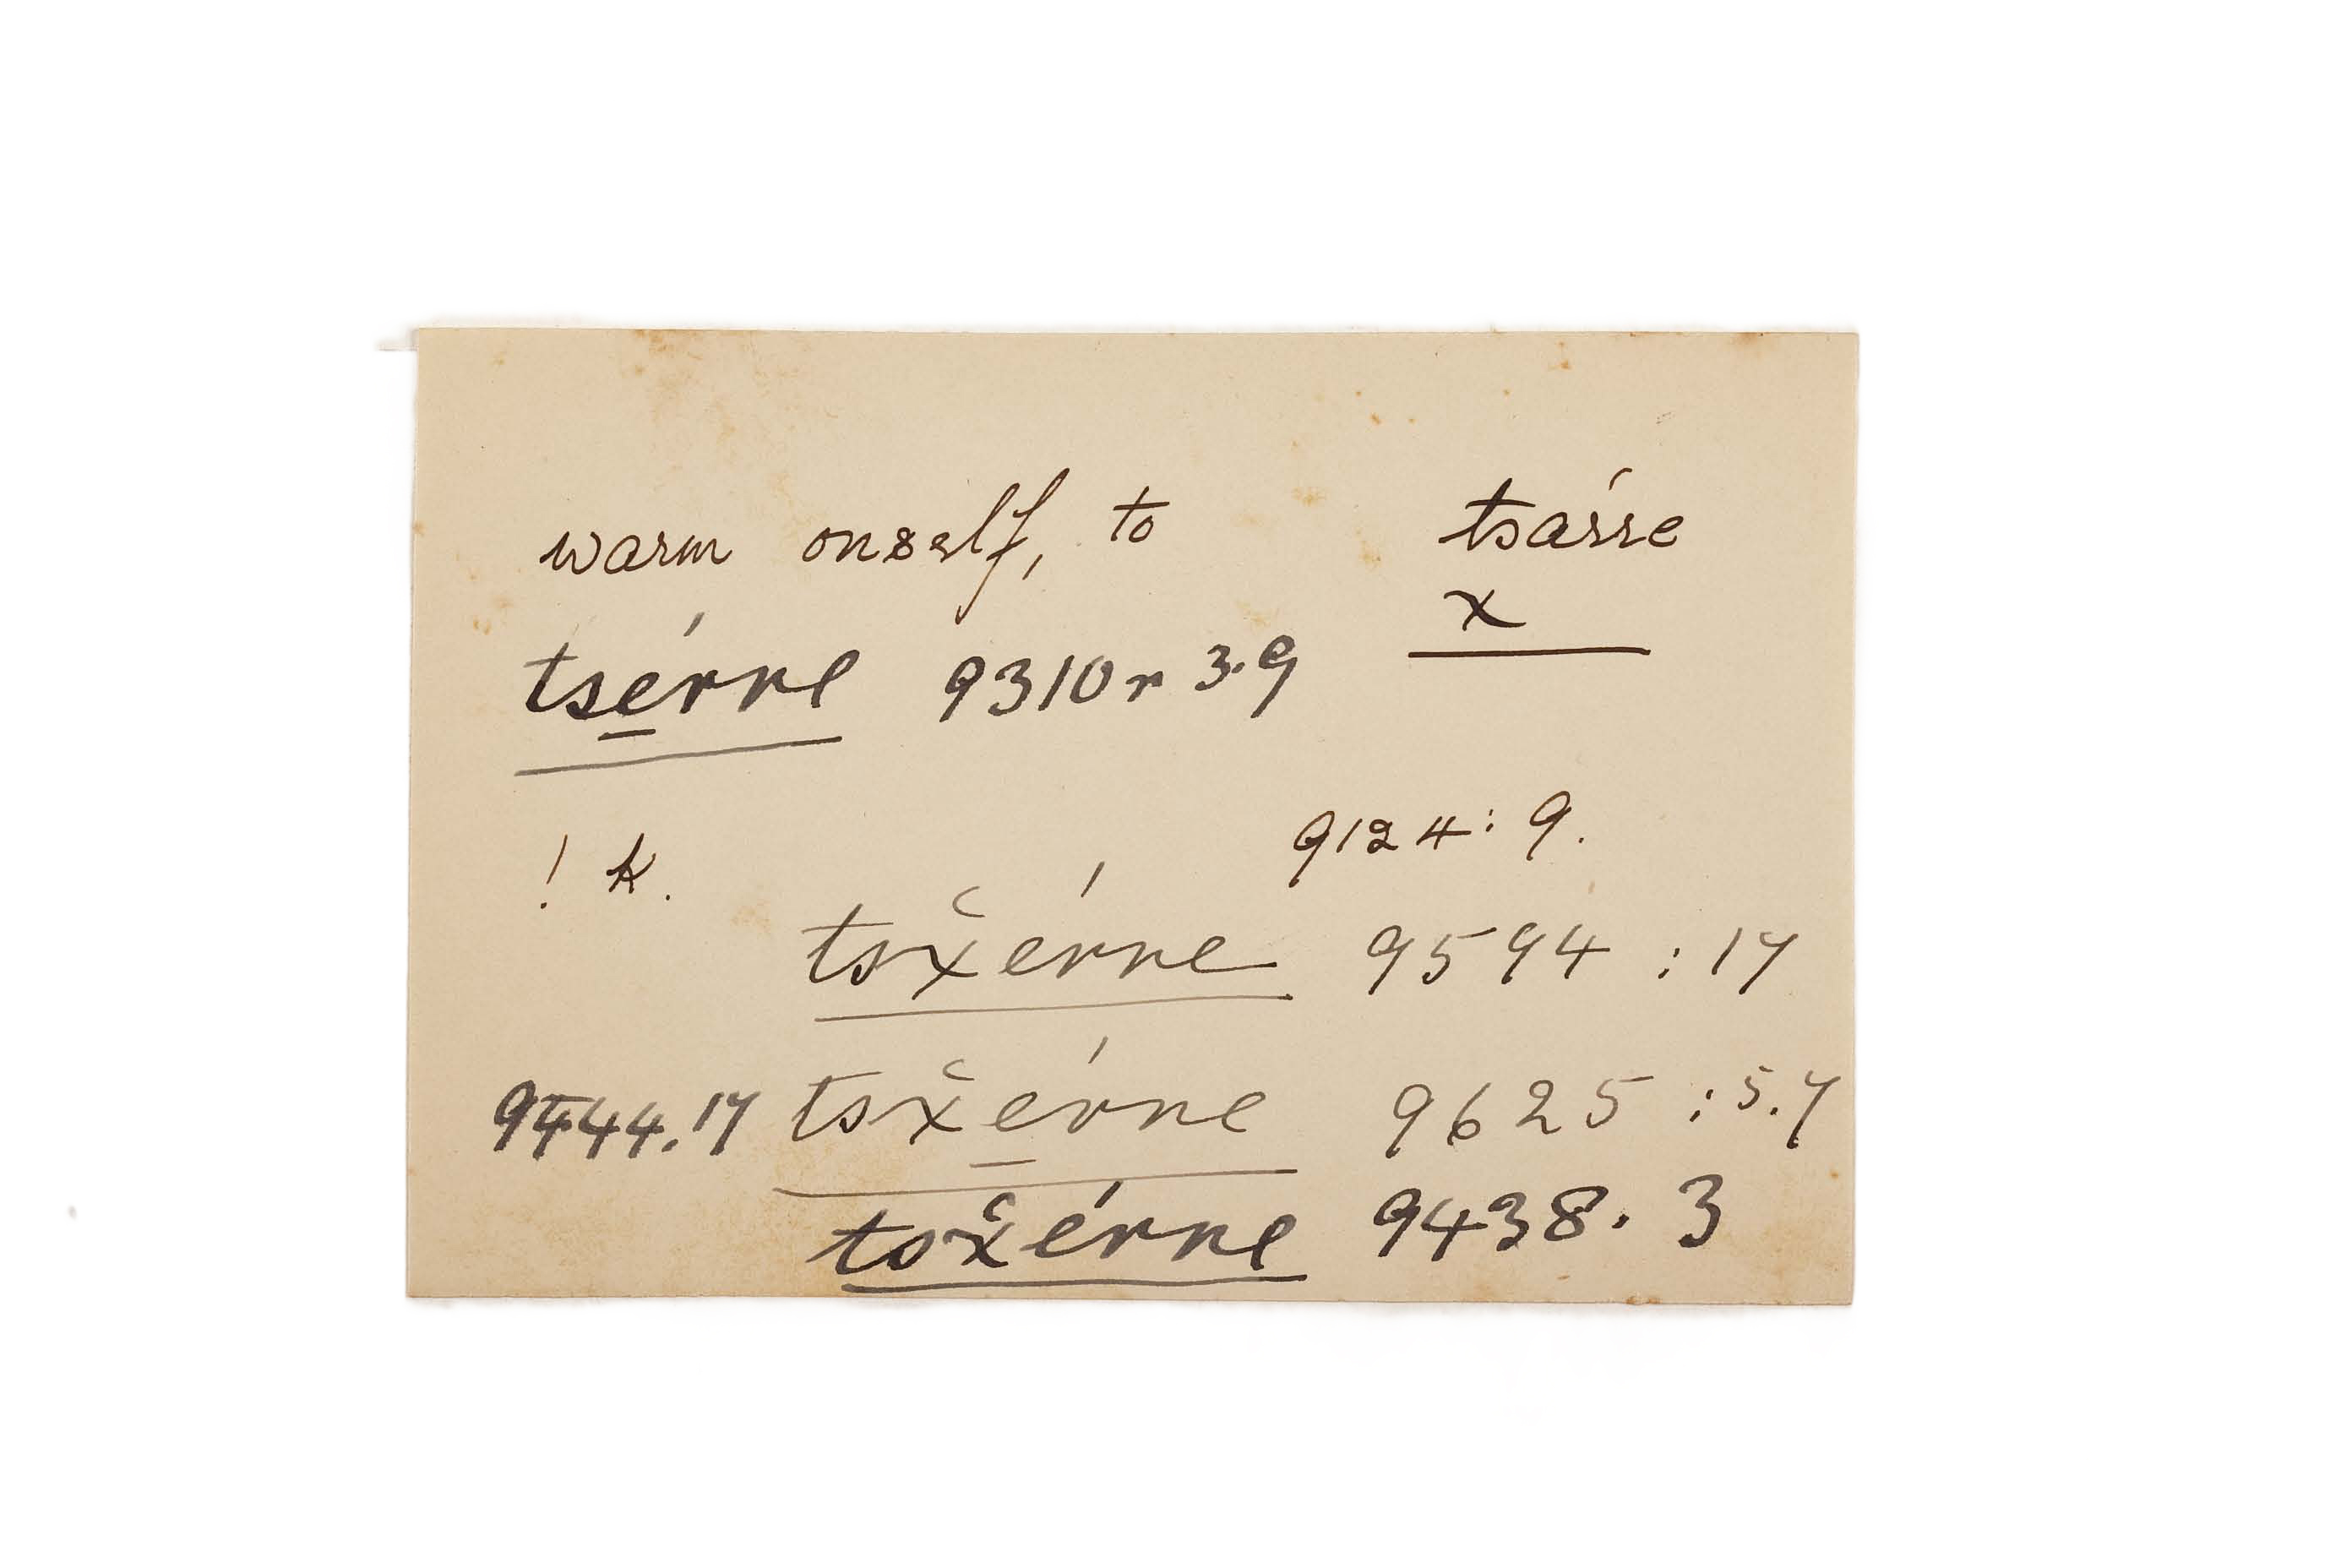 warm onself, to tsárre
x
tsérre 9310r 3.9
! k. 9124: 9.
tsx̆érre 9594 : 17
9444.17 tsx̆érre 9625 : 5.7
tsx̆érre 9438. 3